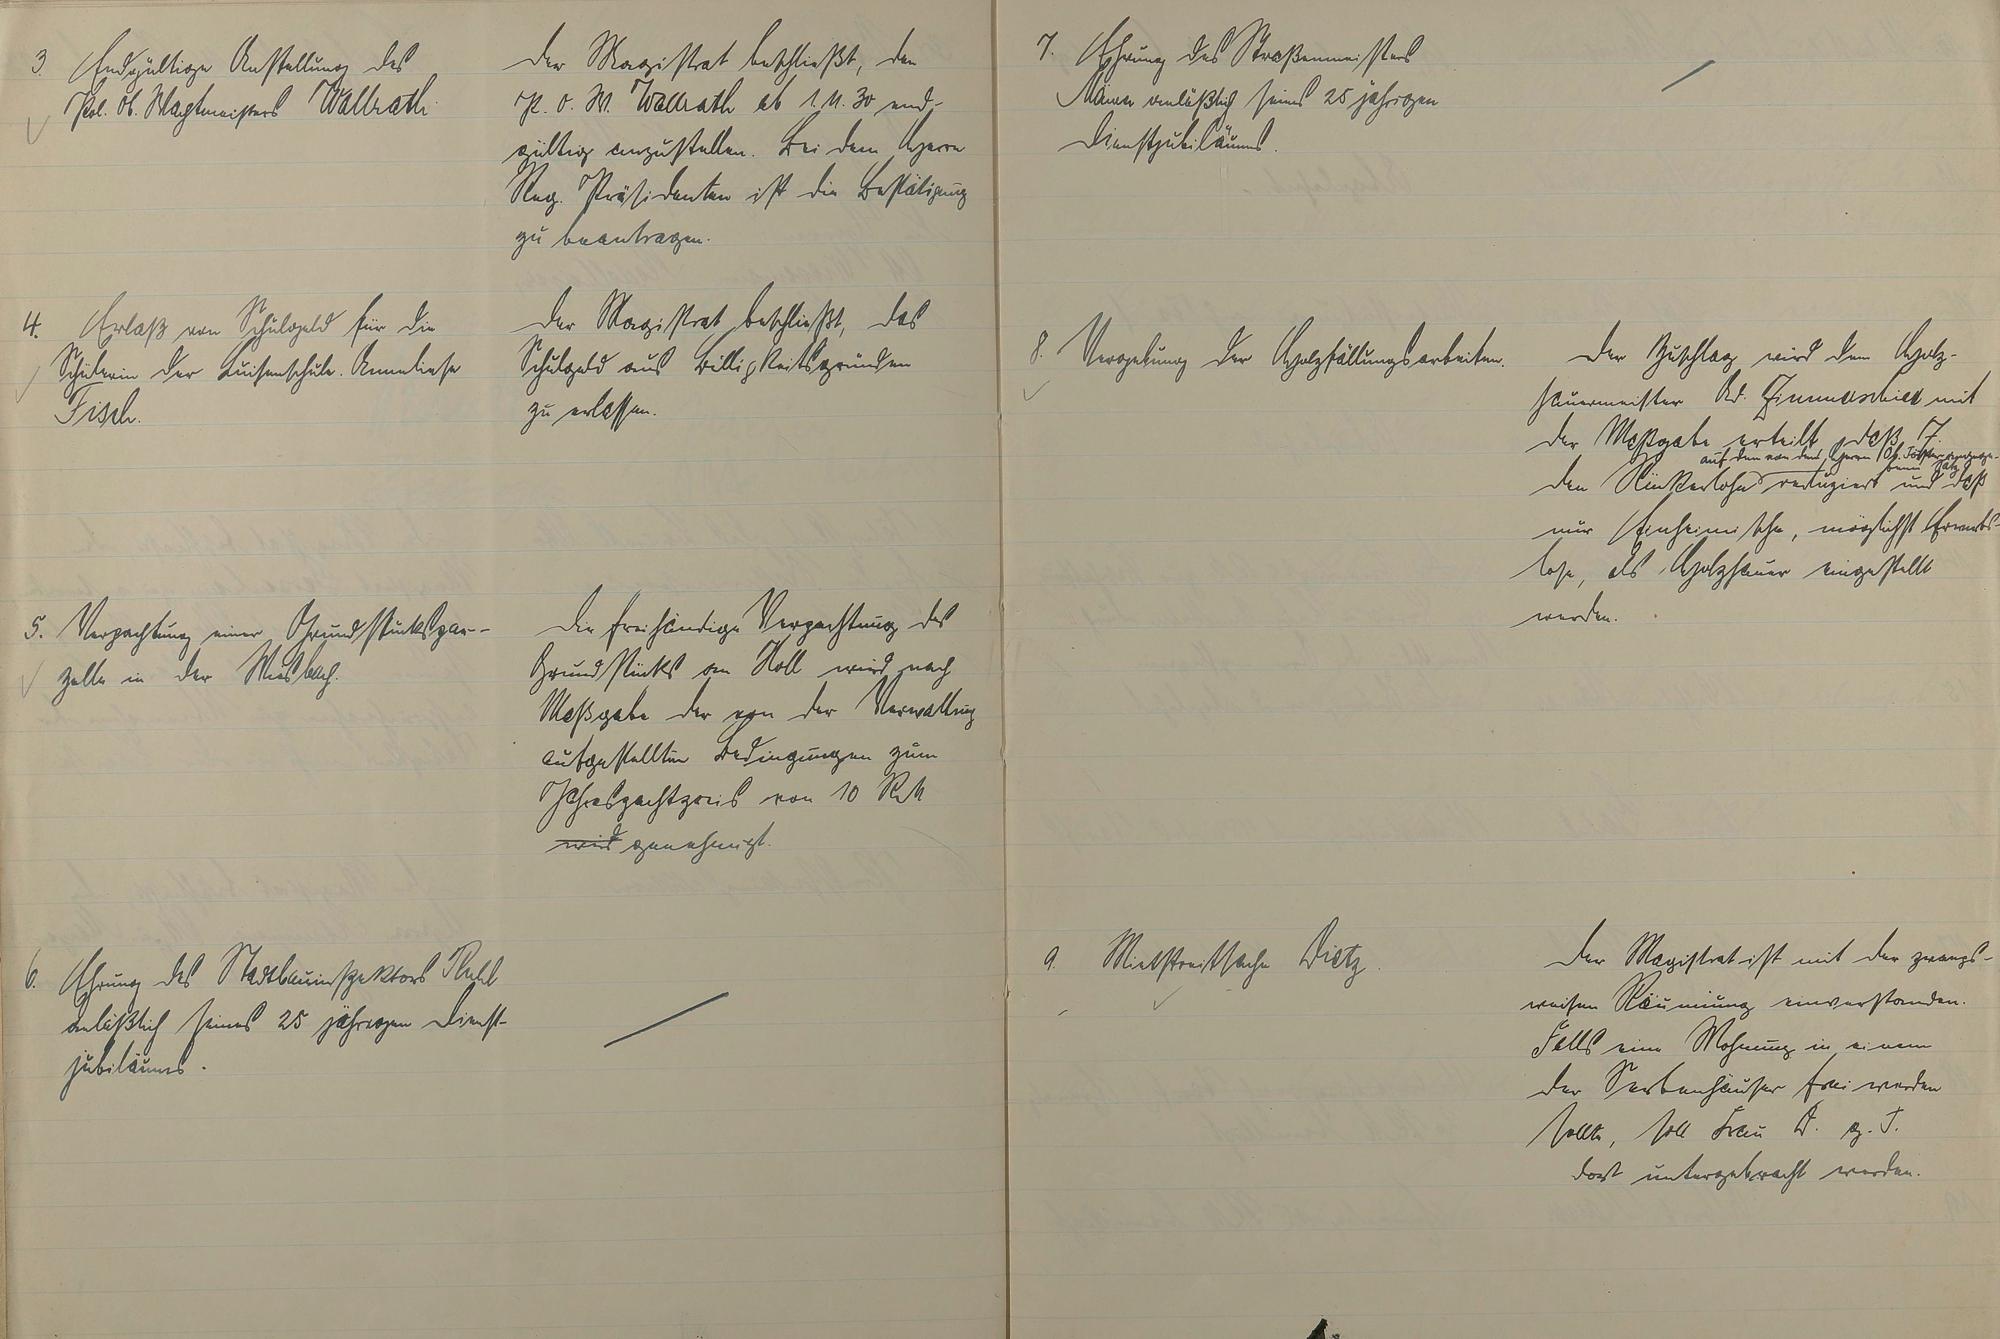 3. Endgültige Anstellung des
Pol. Ob. Wachtmeisters Wallrath.
Der Magistrat beschließt, den
P. O. W. Wallrath ab 1.11.30 end-
gültig anzustellen. Bei dem Herrn
Reg. Präsidenten ist die Bestätigung
zu beantragen.
4. Erlaß von Schulgeld für die
Schülerin der Luisenschule Anneliese
Fisch.
Der Magistrat beschließt, das
Schulgeld aus Billigkeitsgründen
zu erlassen.
5. Verpachtung einer Grundstückspar-
zelle in der Wiesbach.
Die freihändige Verpachtung des
Grundstücks an Noll wird nach
Maßgabe der von der Verwaltung
aufgestellten Bedingungen zum
Jahrespachtpreis von 10 RM
wird genehmigt.
6. Ehrung des Stadtbauinspektors
anläßlich seines 25 jährigen Dienst-
jubiläums.
7. Ehrung des Straßenmeisters
anläßlich seines 25 jährigen
Dienstjubiläums.
8. Vergebung der Holzfällungsarbeiten.
Der Zuschlag wird dem Holz-
hauermeister Ad. Zimmerschied mit
der Maßgabe erteilt, daß Z.
auf den von dem Herrn Ob. Förster angege-
benen Satz
den Rückerlohn reduziert und daß
nur Einheimische, möglichst Erwerbs-
lose, als Holzhauer eingestellt
werden.
9. Mietstreitsache Dietz.
Der Magistrat ist mit der zwangs-
weisen Räumung einverstanden.
Falls eine Wohnung in einem
der häuser frei werden
sollte, soll Frau D. z. T.
dort untergebracht werden.